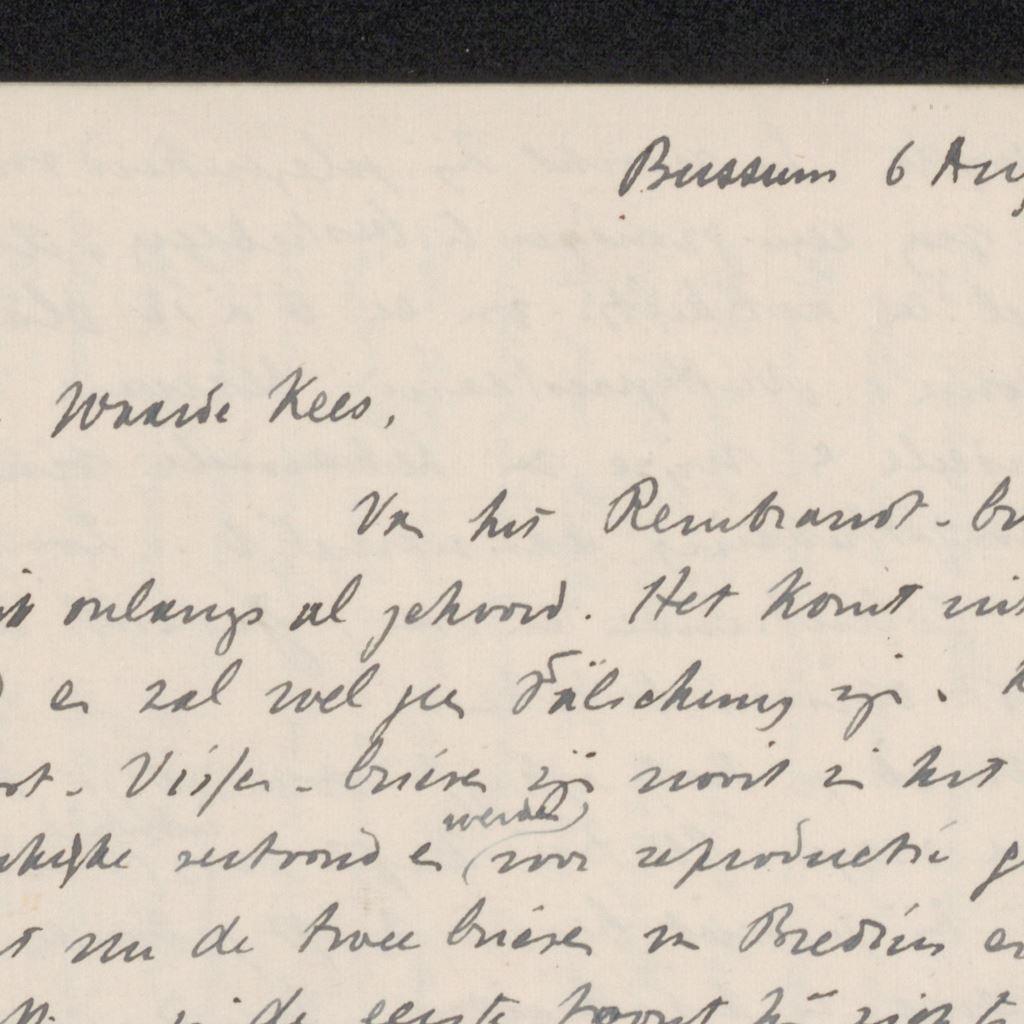 Bussum 6 Aug
Waarde Kees,
Van het Rembrandt-br
onlangs al gehoord. Het komt uit
en zal wel geen Fälschung zijn.
Visser-brieven zijn nooit in het
werden
vertoond en voor reproductie g
nu de twee brieven in Bredius en
in de eerste toont hij zich